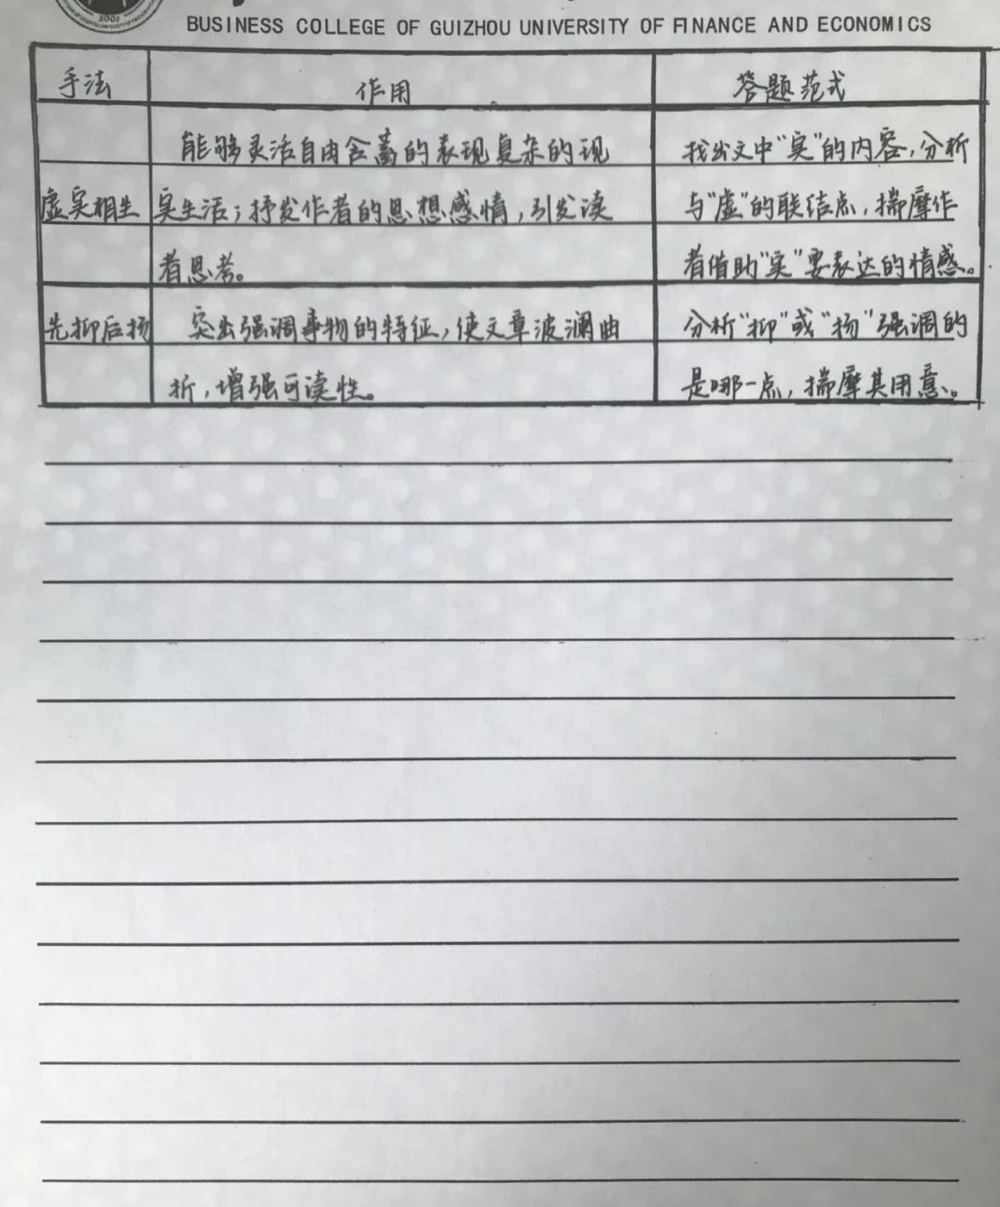 2001
BUSINESS COLLEGE OF GUIZHOU UNIVERSITY OF FINANCE AND ECONOMICS
手法 作用 答题范式
能够灵活自由含蓄的表现复杂的现 找出文中"实"的内容,分析
虚实相生 实生活;抒发作者的思想感情,引发读 与"虚"的联结点,揣摩作
者思考。 者借助"实"要表达的情感。
先抑后扬 突出强调事物的特征,使文章波澜曲 分析"抑"或"扬"强调的
折,增强可读性。 是哪一点,揣摩其用意。